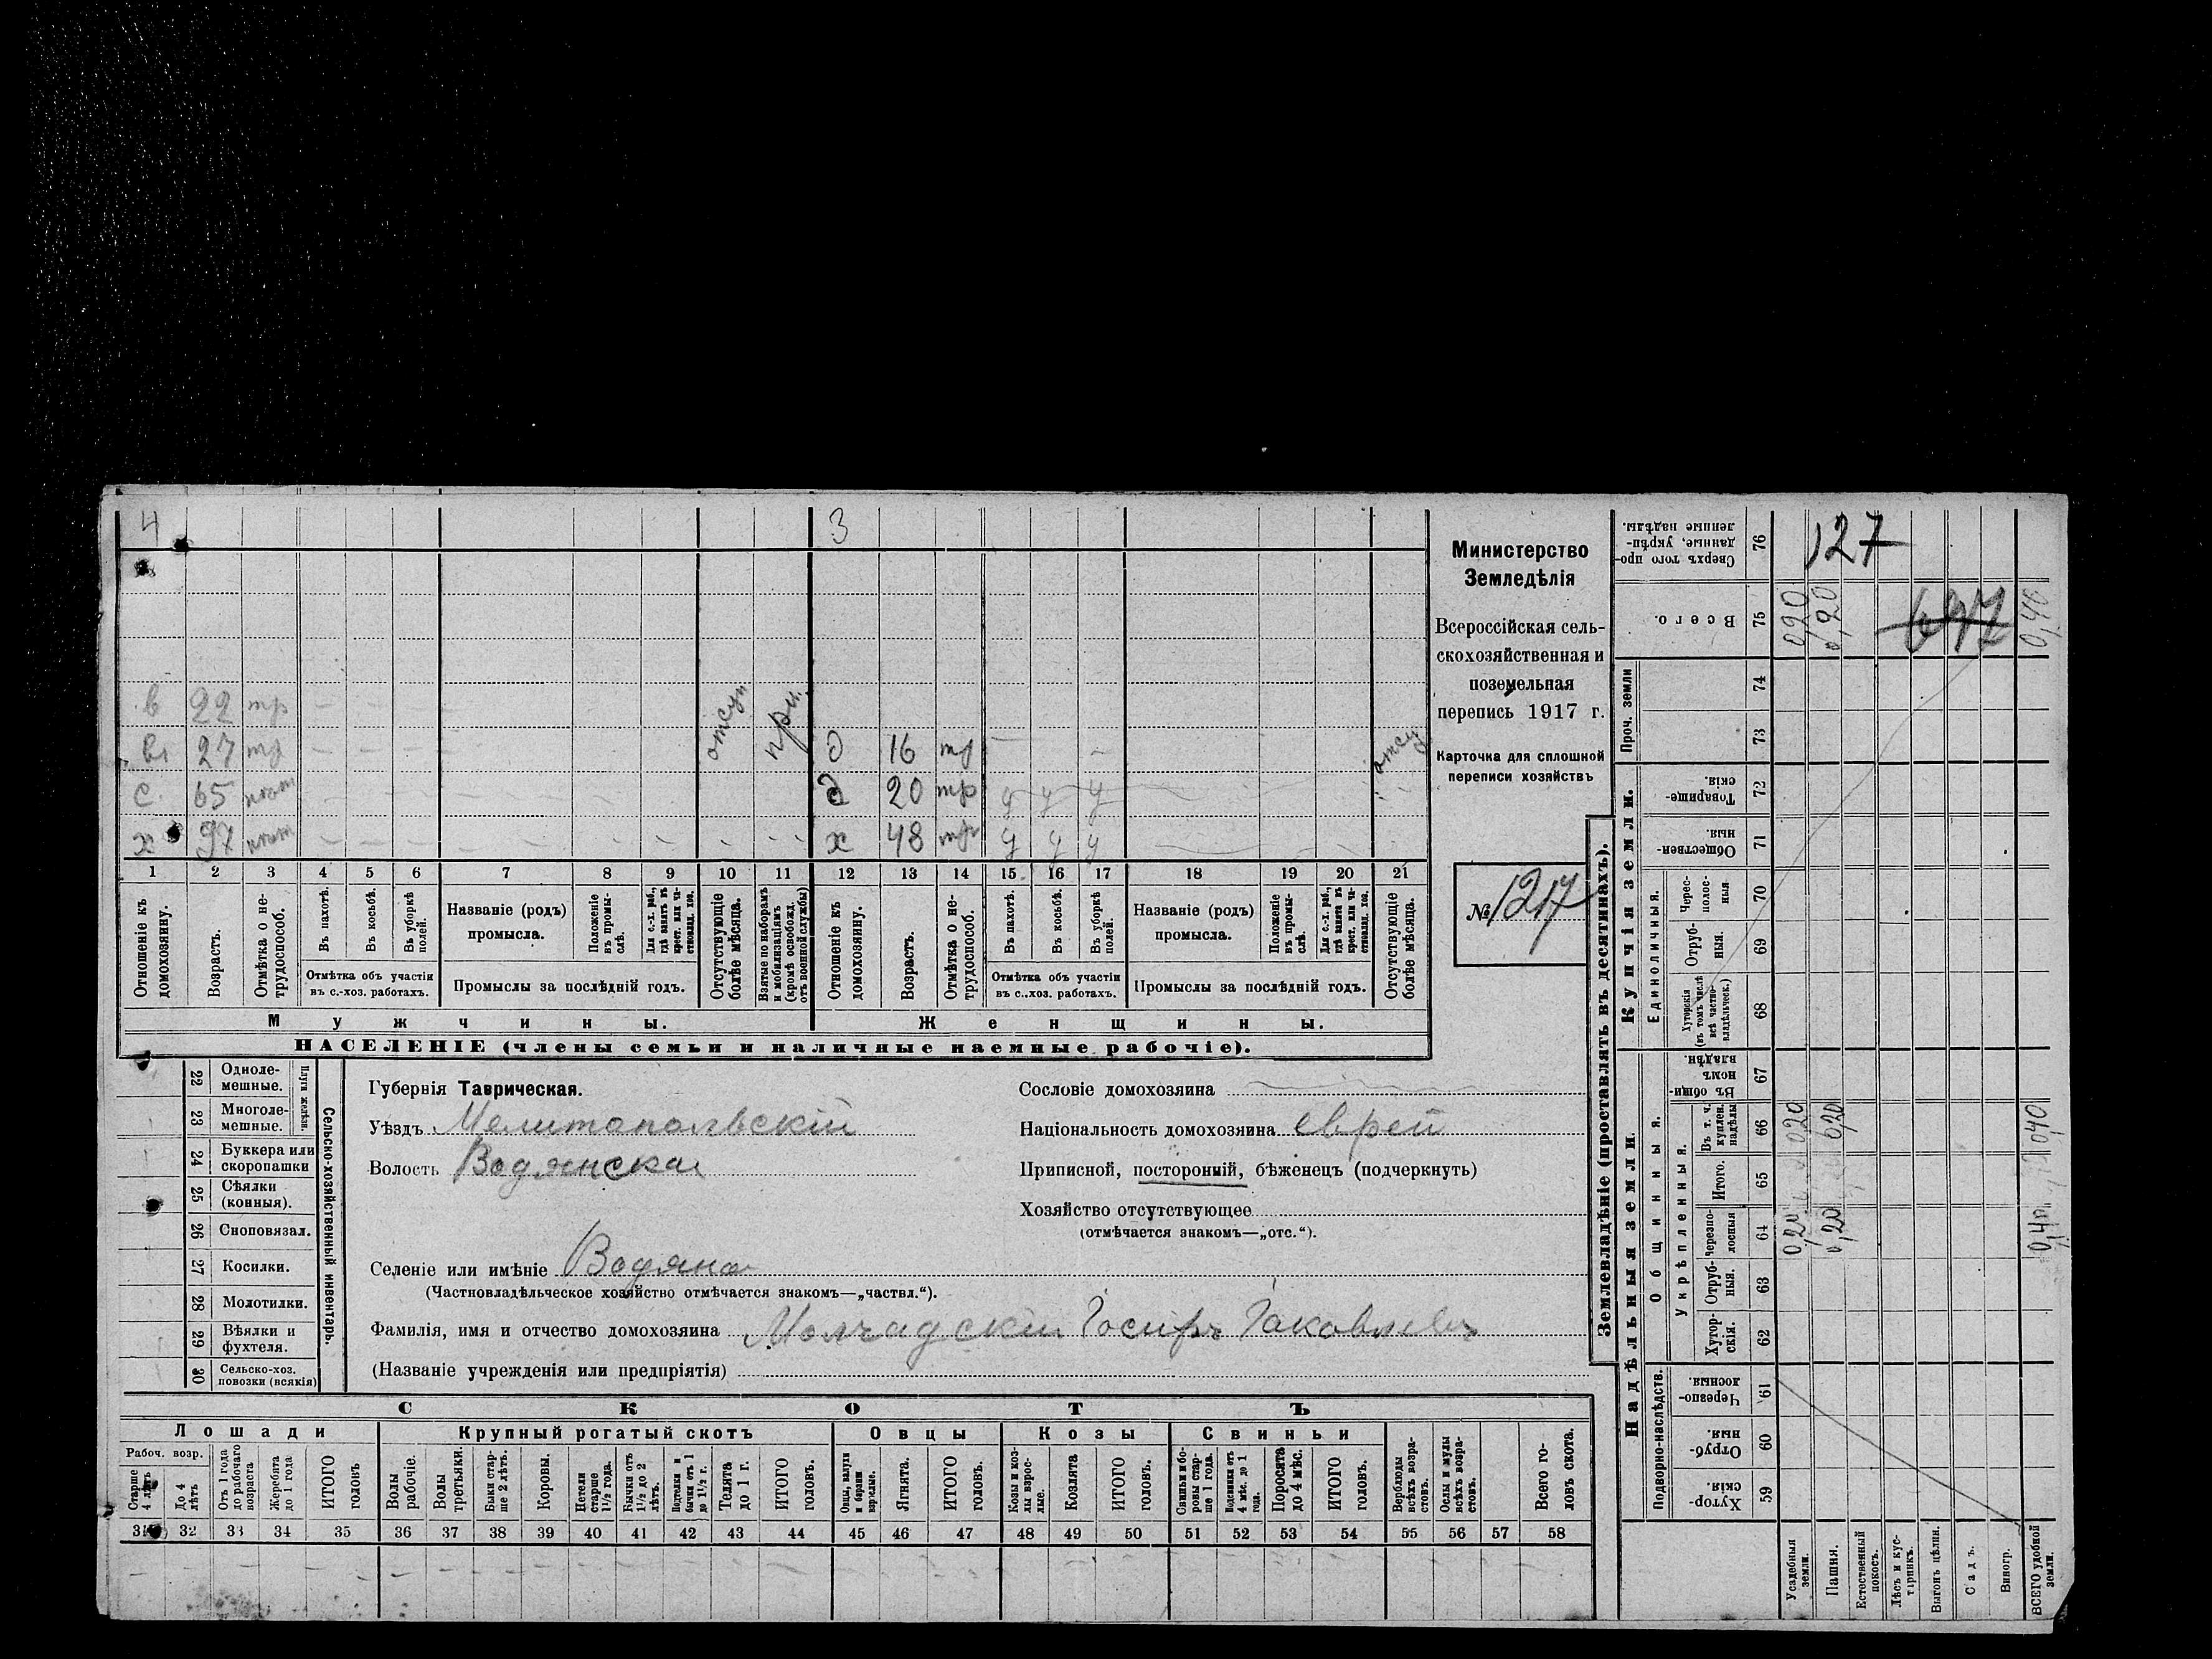 4 3
в 22 тр
вз 27 тр отсут. при. д 16 тр
с. 65 нет д 20 тр у у у отсу
х 97 нет х 48 тр у у у
1 2 3 4 5 6 7 8 9 10 11 12 13 14 15 16 17 18 19 20 21
Отношеніе къ домохозяину.
Возрастъ.
Отмѣтка о не-трудоспособ.
Въ пахотѣ.
Въ косьбѣ.
Въ уборкѣ полей.
Отмѣтка объ участіи
въ с.-хоз. работахъ.
Названіе (родъ)
промысла.
Положеніе въ промы-слѣ.
Для с.-х. раб., гдѣ занятъ въ крест. или ча-стновлад. хоз.
Промыслы за послѣдній годъ.
Отсутствующіе болѣе мѣсяца.
Взятые по наборамъ и мобилизаціямъ (кромѣ освобожд. отъ военной службы)
Отношеніе къ домохозяину.
Возрастъ.
Отмѣтка о не-трудоспособ.
Въ пахотѣ.
Въ косьбѣ.
Въ уборкѣ полей.
Отмѣтка объ участіи
въ с.-хоз. работахъ.
Названіе (родъ)
промысла.
Положеніе въ промы-слѣ.
Для с.-х. раб., гдѣ занята въ крест. или ча-стновлад. хоз.
Промыслы за послѣдній годъ.
Отсутствующіе болѣе мѣсяца.
Мужчины. Женщины.
НАСЕЛЕНІЕ (члены семьи и наличные наемные рабочіе).
Министерство
Земледѣлія
Всероссійская сель-
скохозяйственная и
поземельная
перепись 1917 г.
Карточка для сплошной
переписи хозяйствъ
№ 1217
Сельско-хозяйственный инвентарь.
Плуги желѣзн.
22 Одноле-
мешные.
23 Многоле-
мешные.
24 Буккера или
скоропашки
25 Сѣялки
(конныя).
26 Сноповязал.
27 Косилки.
28 Молотилки.
29 Вѣялки и
фухтеля.
30 Сельско-хоз.
повозки (всякія)
Губернія Таврическая.
Уѣздъ Мелитопольскій
Волость Водянская
Селеніе или имѣніе Водяное
(Частновладѣльческое хозяйство отмѣчается знакомъ—„частвл.“).
Фамилія, имя и отчество домохозяина Молчадскій Іосифъ Іаковлевъ
(Названіе учрежденія или предпріятія)
Сословіе домохозяина
Національность домохозяина еврей
Приписной, посторонній, бѣженецъ (подчеркнуть)
Хозяйство отсутствующее
(отмѣчается знакомъ—„отс.“).
СКОТЪ
Лошади Крупный рогатый скотъ Овцы Козы Свиньи
Рабоч. возр.
Старше 4 лѣтъ
До 4 лѣтъ
Отъ 1 года до рабочаго возраста
Жеребята до 1 года
ИТОГО головъ
Волы рабочіе.
Волы третьяки.
Быки стар-ше 2 лѣтъ.
Коровы.
Нетели старше 1½ года.
Бычки отъ 1½ до 2 лѣтъ.
Подтелки и бычки отъ 1 до 1½ г.
Телята до 1 г.
ИТОГО головъ.
Овцы, валухи и бараны взрослые.
Ягнята.
ИТОГО головъ.
Козы и коз-лы взрос-лые.
Козлята
ИТОГО головъ.
Свиньи и бо-ровы стар-ше 1 года.
Подсвинки отъ 4 мѣс. до 1 года.
Поросята до 4 мѣс.
ИТОГО головъ.
Верблюды всѣхъ возра-стовъ.
Ослы и мулы всѣхъ возра-стовъ.
Всего го-ловъ скота.
31 32 33 34 35 36 37 38 39 40 41 42 43 44 45 46 47 48 49 50 51 52 53 54 55 56 57 58
Землевладѣніе (проставлять въ десятинахъ).
Сверхъ того про-данные, укрѣп-ленные надѣлы. 76 127
Всего. 75 0,20 0,20 647 0,40
Проч. земли
74
73
Купчія земли.
Товарище-скія. 72
Обществен-ныя. 71
Единоличныя.
Черес-полос-ныя 70
Отруб-ныя. 69
Хуторскія (въ томъ числѣ всѣ частно-владѣльческ.) 68
Надѣльныя земли.
Общинныя.
Въ общи-номъ владѣн. 67
Укрѣпленныя.
Въ т. ч. куплен. надѣлы 66 0,20 0,20 0,40
Итого. 65
Черезпо-лосныя 64 0,20 0,20 0,40
Отруб-ныя. 63
Хутор-скія. 62
Подворно-наслѣдств.
Черезпо-лосныя 61
Отруб-ныя 60
Хутор-скія. 59
Усадебныя земли.
Пашня.
Естественный покосъ.
Лѣсъ и кус-тарникъ.
Выгонъ цѣлин.
Садъ.
Виногр.
ВСЕГО удобной земли.